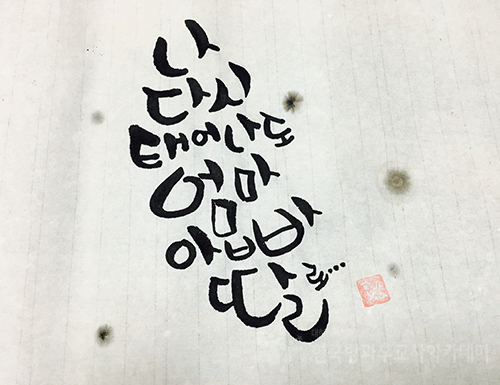 나
다시
태어나도
엄마
아빠
딸로...